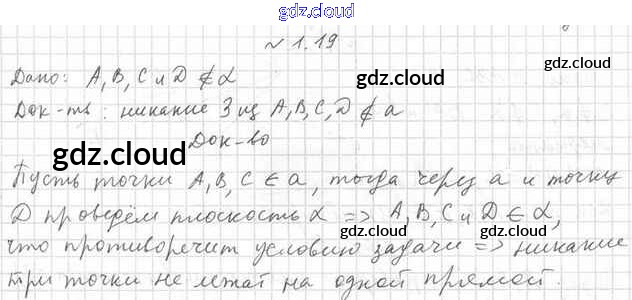 gdz.cloud
№ 1.19
Дано: A, B, C и D ∉ α
gdz.cloud
Док-ть: никакие 3 из A, B, C, D ∉ a
gdz.cloud
Док-во
gdz.cloud
Пусть точки A, B, C ∈ a, тогда через a и точку
D проведём плоскость α => A, B, C и D ∈ α,
gdz.cloud
gdz.cloud
что противоречит условию задачи => никакие
три точки не лежат на одной прямой.